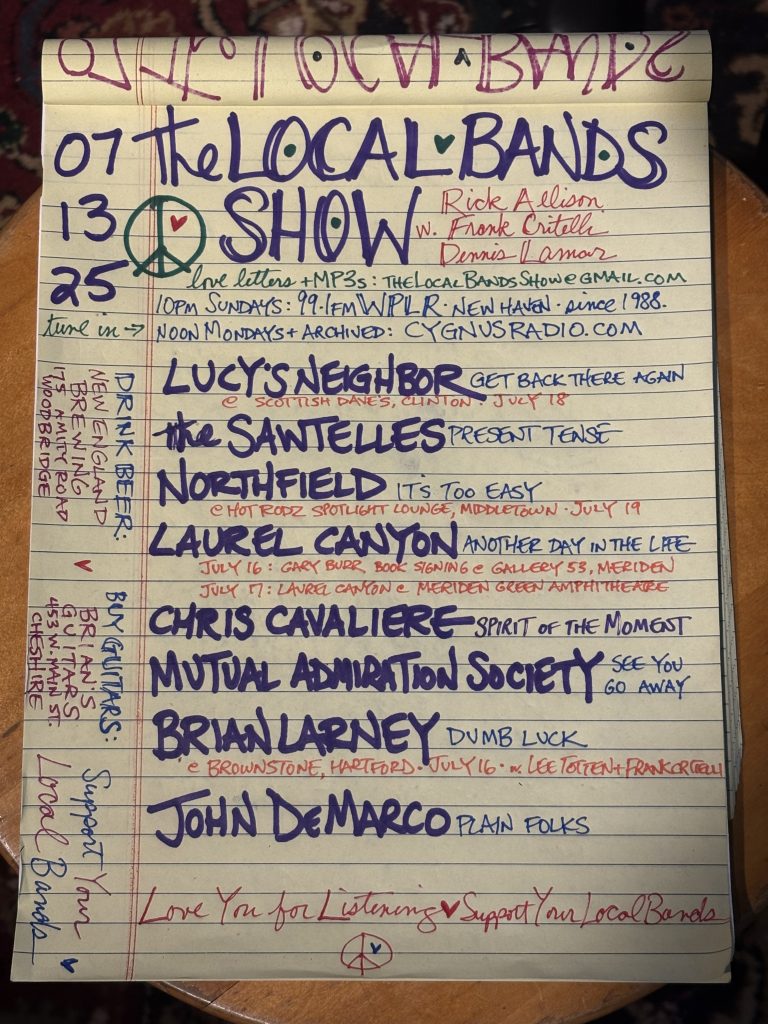 The LOCAL BANDS
07
13
25
The LOCAL BANDS
SHOW
w. Rick Allison
Frank Critelli
Dennis Lamar
love letters + MP3s: THELOCALBANDSSHOW@GMAIL.COM
10PM SUNDAYS: 99.1FM WPLR · NEW HAVEN · since 1988.
tune in → NOON MONDAYS + ARCHIVED: CYGNUSRADIO.COM
LUCY'S NEIGHBOR GET BACK THERE AGAIN
@ SCOTTISH DAVE'S, CLINTON · JULY 18
the SAWTELLES PRESENT TENSE
NORTHFIELD IT'S TOO EASY
@ HOT RODZ SPOTLIGHT LOUNGE, MIDDLETOWN · JULY 19
LAUREL CANYON ANOTHER DAY IN THE LIFE
JULY 16: GARY BURR BOOK SIGNING @ GALLERY 53, MERIDEN
JULY 17: LAUREL CANYON @ MERIDEN GREEN AMPHITHEATRE
CHRIS CAVALIERE SPIRIT OF THE MOMENT
MUTUAL ADMIRATION SOCIETY SEE YOU
GO AWAY
BRIAN LARNEY DUMB LUCK
@ BROWNSTONE, HARTFORD · JULY 16 · w. LEE TOTTEN + FRANK CRITELLI
JOHN DEMARCO PLAIN FOLKS
Love You for Listening ♥ Support Your Local Bands
DRINK BEER:
NEW ENGLAND
BREWING
175 AMITY ROAD
WOODBRIDGE
BUY GUITARS:
BRIAN'S
GUITARS
453 W. MAIN ST.
CHESHIRE
Support Your
Local Bands